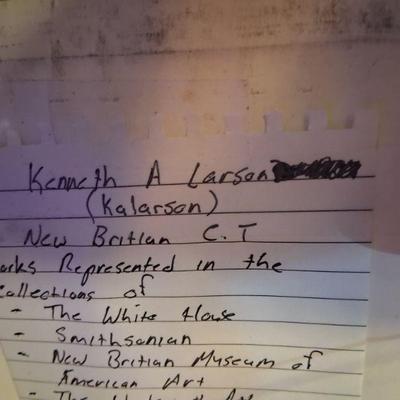 Kenneth A Larson
(Kalarson)
New Britian C.T
orks Represented in the
Collections of
- The White House
- Smithsonian
- New Britian Museum of
American Art
- The